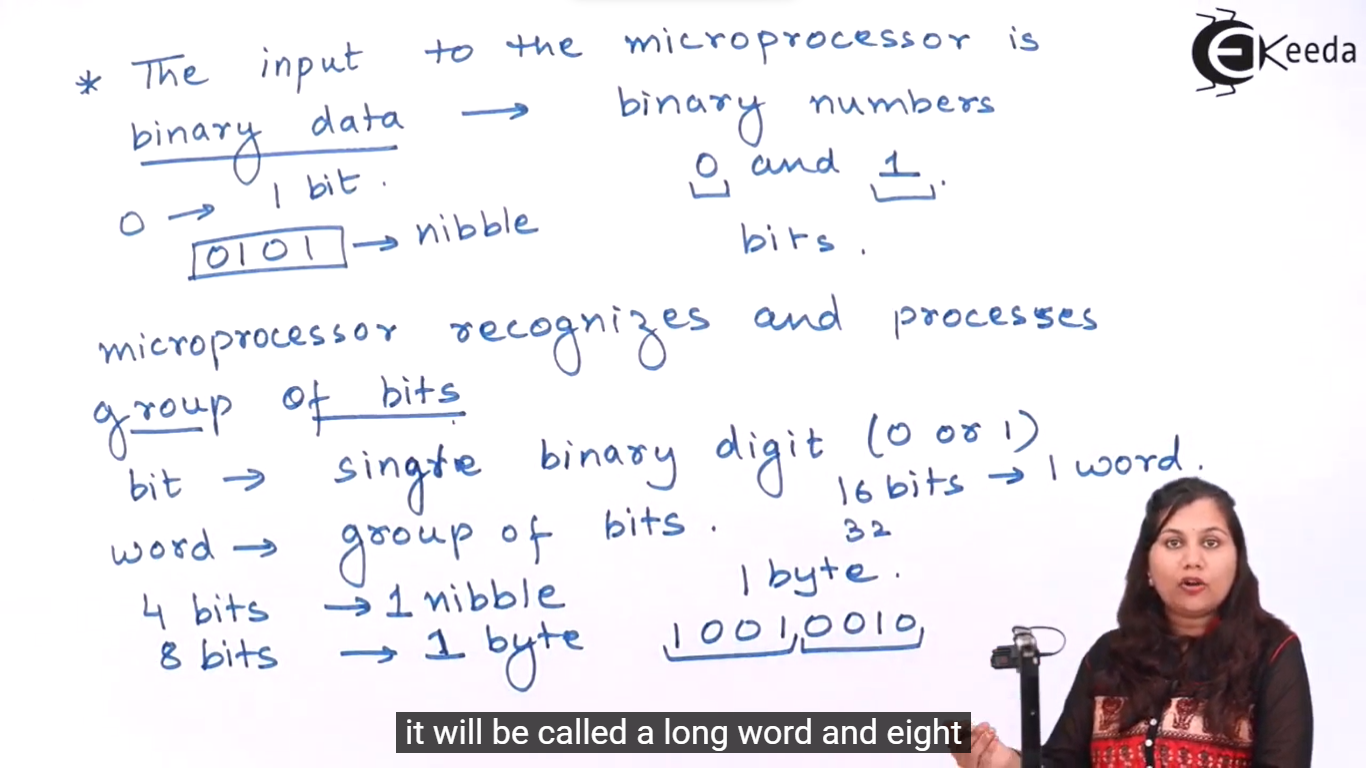 * The input to the microprocessor is
binary data → binary numbers
0 and 1.
0 → 1 bit.
0101 → nibble
bits.
microprocessor recognizes and processes
group of bits
bit → single binary digit (0 or 1)
16 bits → 1 word.
word → group of bits.
32
4 bits → 1 nibble
1 byte.
8 bits → 1 byte
1001,0010,
EKeeda
it will be called a long word and eight